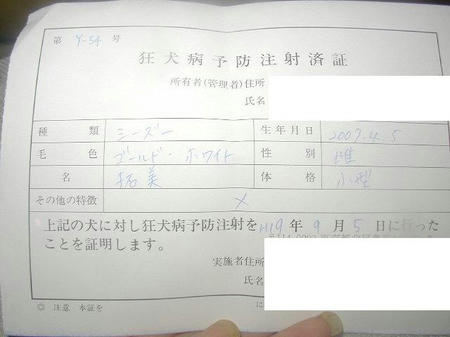 第 Y-54 号
狂犬病予防注射済証
所有者(管理者)住所
氏名
種類 シーズー 生年月日 2007.4.5
毛色 ゴールド・ホワイト 性別 雄
名 拓美 体格 小型
その他の特徴 ×
上記の犬に対し狂犬病予防注射を H19 年 9 月 5 日に行った
ことを証明します。
実施者住所
氏名
◎ 注意 本証を に